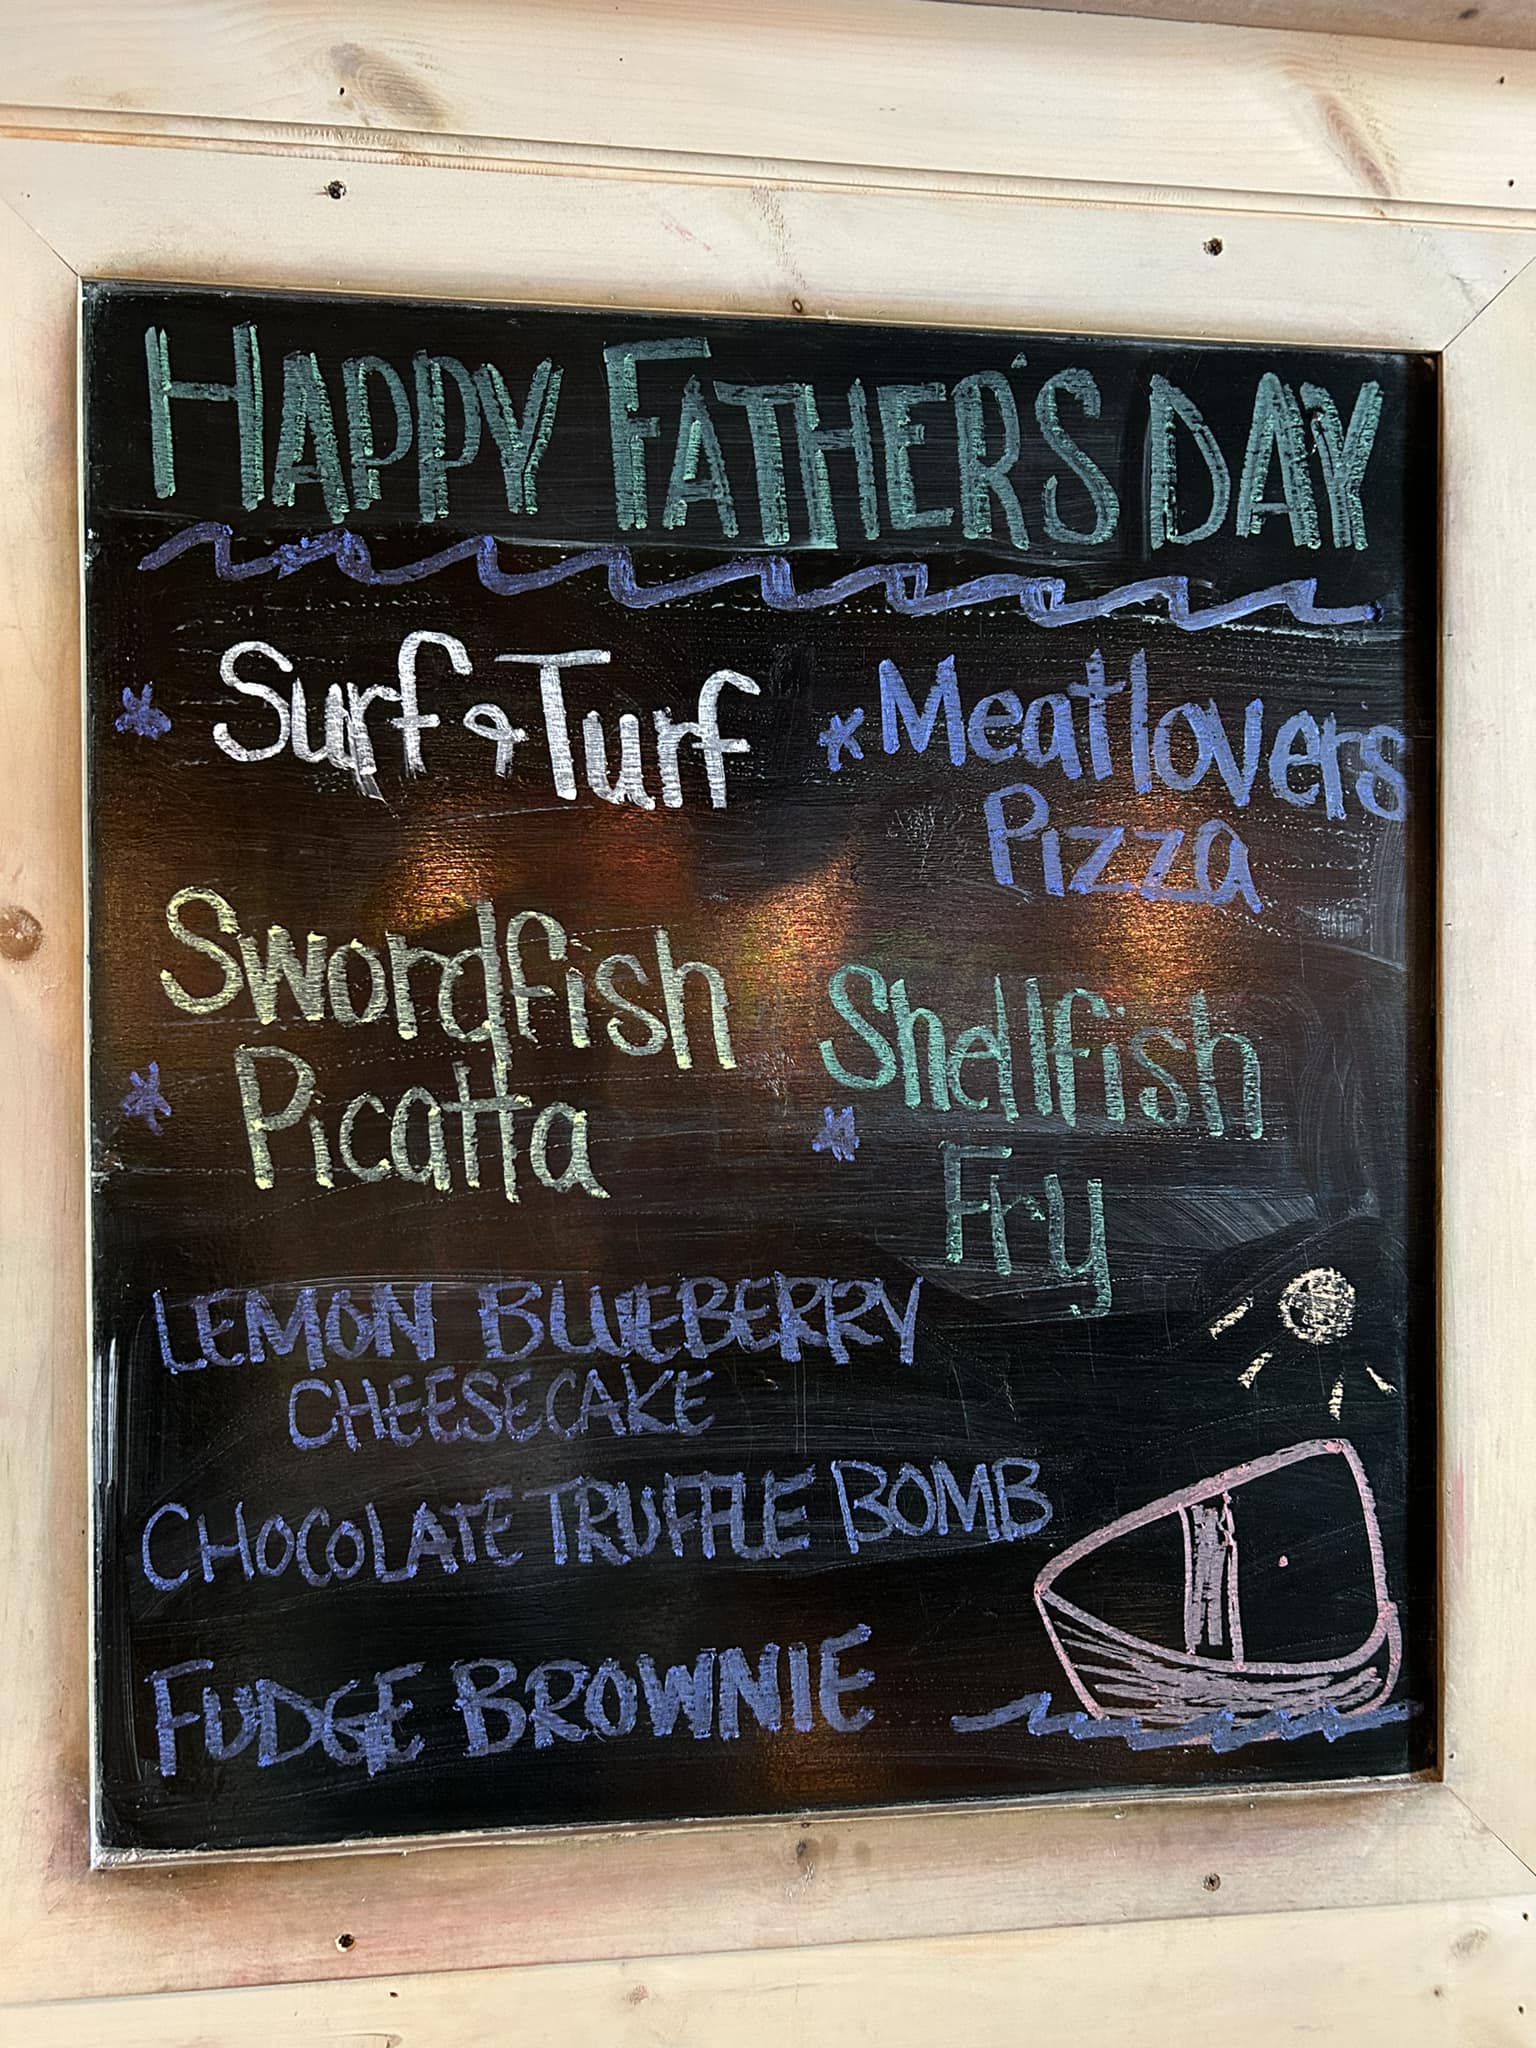 HAPPY FATHER'S DAY
* Surf & Turf
* Meatlovers
Pizza
Swordfish
* Picatta
Shellfish
* Fry
LEMON BLUEBERRY
CHEESECAKE
CHOCOLATE TRUFFLE BOMB
FUDGE BROWNIE